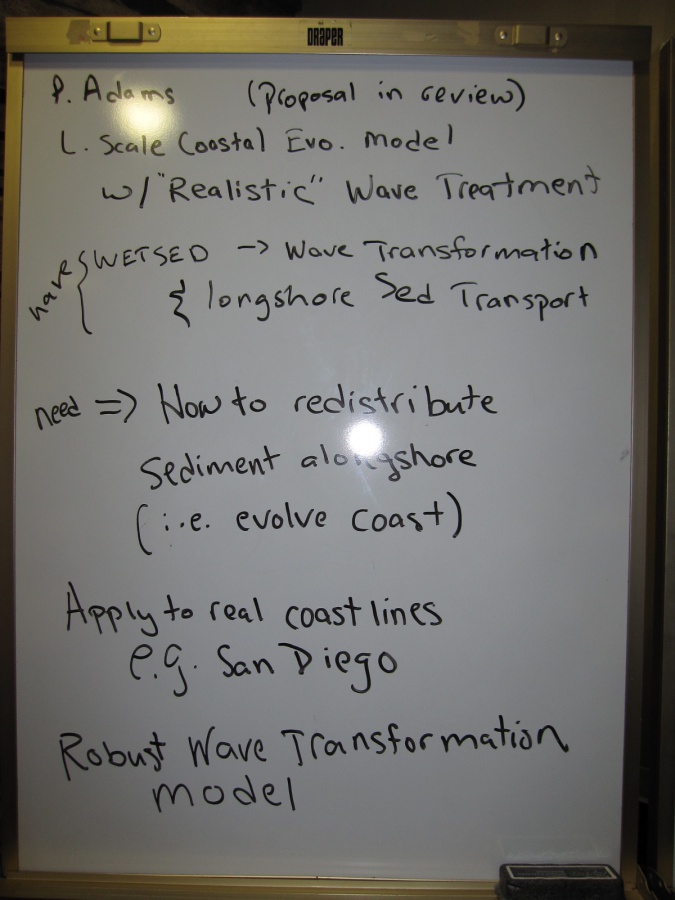 DRAPER
P. Adams (Proposal in review)
L. Scale Coastal Evo. Model
w/ "Realistic" Wave Treatment
have { WETSED -> Wave Transformation
& longshore Sed Transport
need => How to redistribute
Sediment alongshore
(i.e. evolve coast)
Apply to real coastlines
e.g. San Diego
Robust Wave Transformation
model